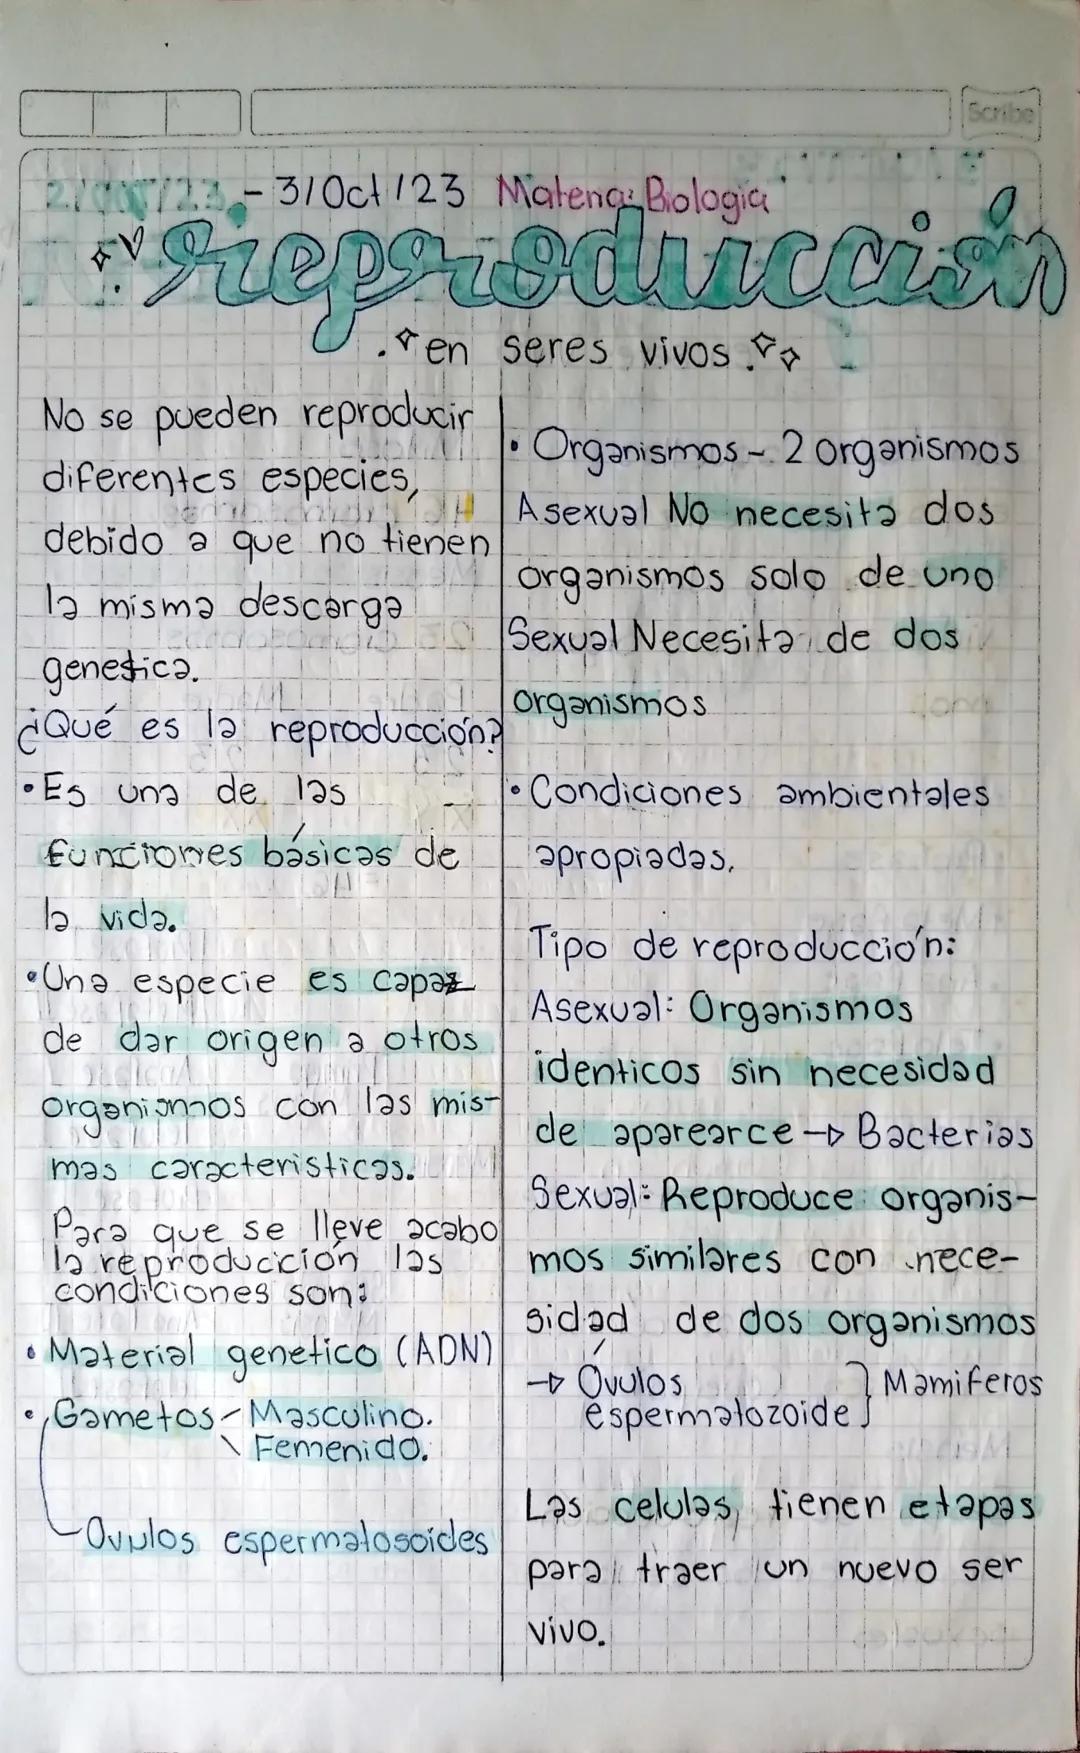 Scribe
- 31Oct/23 Materia: Biologia
reproducción
en seres vivos
No se pueden reproducir
diferentes especies,
debido a que no tienen
la misma descarga
genetica.
¿Qué es la reproducción?
• Es una de las
funciones básicas de
la vida.
• Una especie es capaz
de dar origen a otros
organismos con las mis-
mas caracteristicas.
Para que se lleve acabo
la reproducción las
condiciones son:
• Material genetico (ADN)
• Gametos - Masculino.
\ Femenido.
Ovulos espermatosoides
• Organismos - 2 organismos
Asexual No necesita dos
organismos solo de uno
Sexual Necesita de dos
organismos
• Condiciones ambientales
apropiadas.
Tipo de reproducción:
Asexual: Organismos
identicos sin necesidad
de aparearce → Bacterias
Sexual: Reproduce organis-
mos similares con nece-
sidad de dos organismos
→ Óvulos
espermatozoide } Mamiferos
Las celulas, tienen etapas
para traer un nuevo ser
vivo.